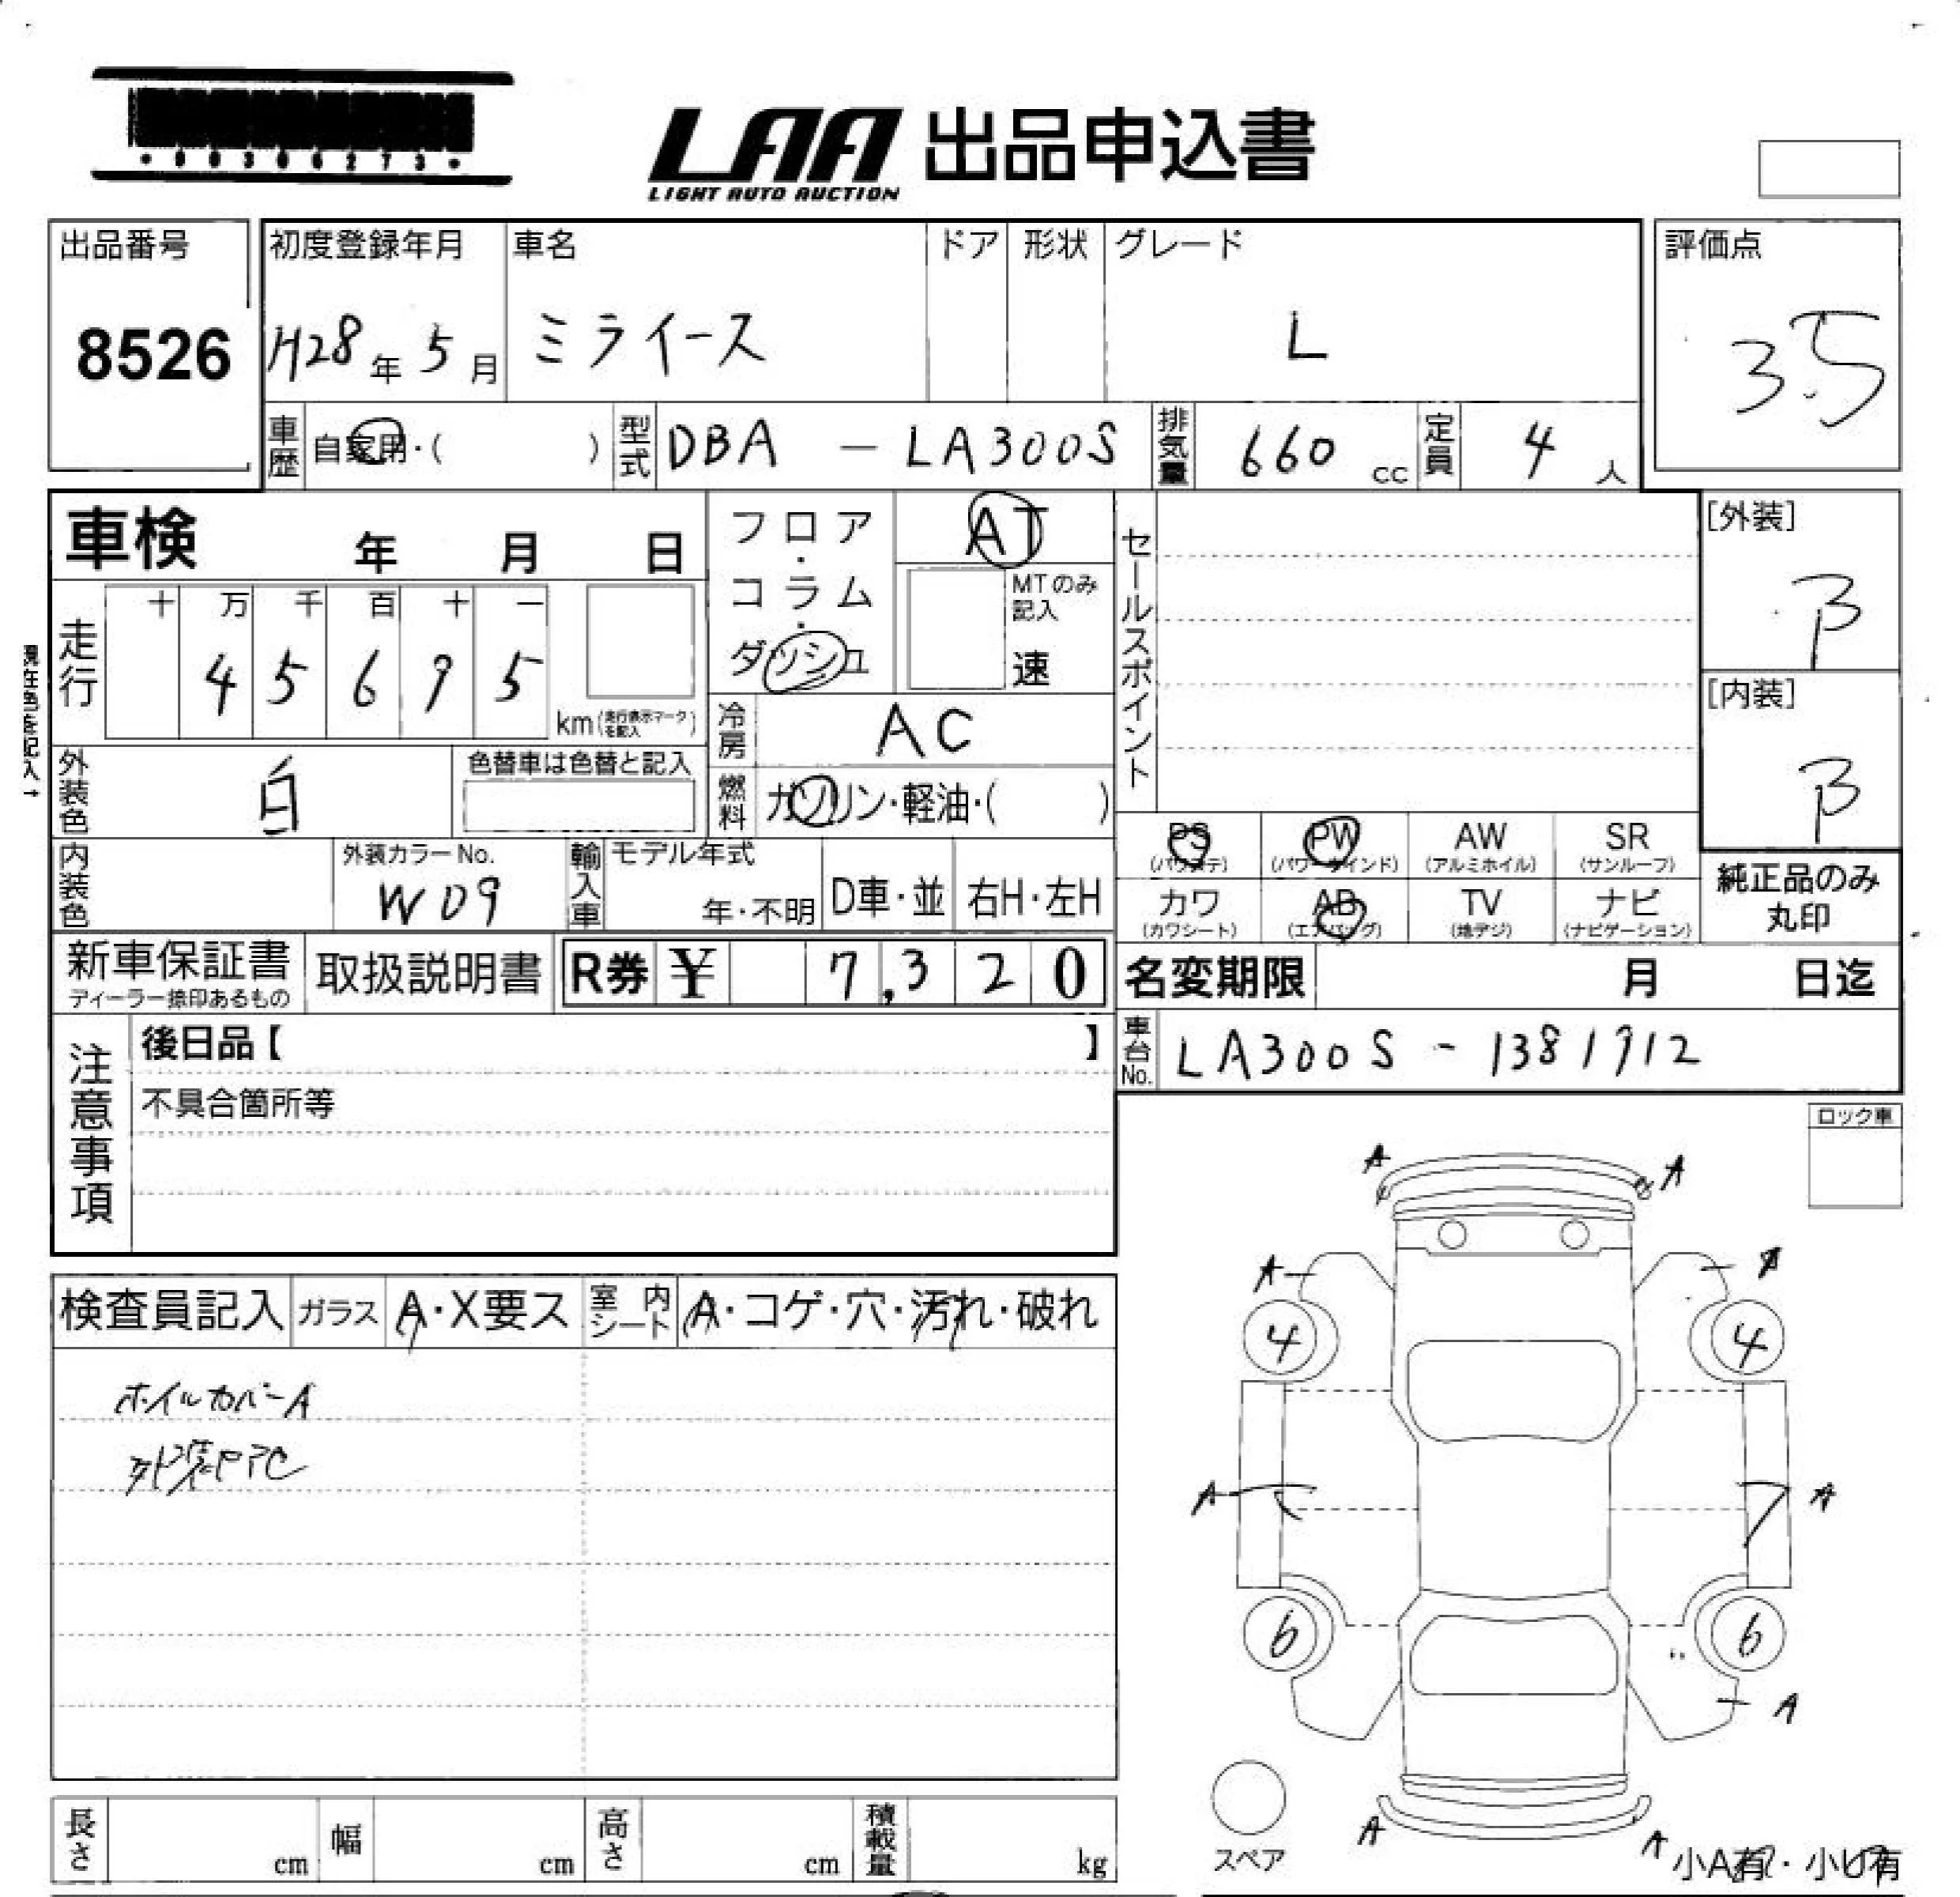 ・00306273・
LAA 出品申込書
LIGHT AUTO AUCTION
出品番号
8526
初度登録年月
H28年 5月
車名
ミライース
ドア
形状
グレード
L
評価点
3.5
車歴
自家用・( )
型式
DBA - LA300S
排気量
660 cc
定員
4 人
車検 年 月 日
フロア・コラム・ダッシュ
AT
MTのみ記入
速
セールスポイント
[外装]
B
[内装]
B
現在色を記入→
走行
十 万 千 百 十 一
4 5 6 9 5
km (走行表示マークを記入)
冷房
AC
外装色
白
色替車は色替と記入
燃料
ガソリン・軽油・( )
内装色
外装カラーNo.
W09
輸入車
モデル年式
年・不明
D車・並
右H・左H
PS
(パワステ)
PW
(パワーウインド)
AW
(アルミホイル)
SR
(サンルーフ)
カワ
(カワシート)
AB
(エアバッグ)
TV
(地デジ)
ナビ
(ナビゲーション)
純正品のみ
丸印
新車保証書
ディーラー捺印あるもの
取扱説明書
R券 ¥ 7,320
名変期限 月 日迄
車台No.
LA300S - 1381912
注意事項
後日品【 】
不具合箇所等
ロック車
検査員記入
ガラス
A・X要ス
室内シート
A・コゲ・穴・汚れ・破れ
ホイルカバーA
A A
A
4 4
A A
6 6
A
A A
スペア
小A有・小U有
長さ cm
幅 cm
高さ cm
積載量 kg